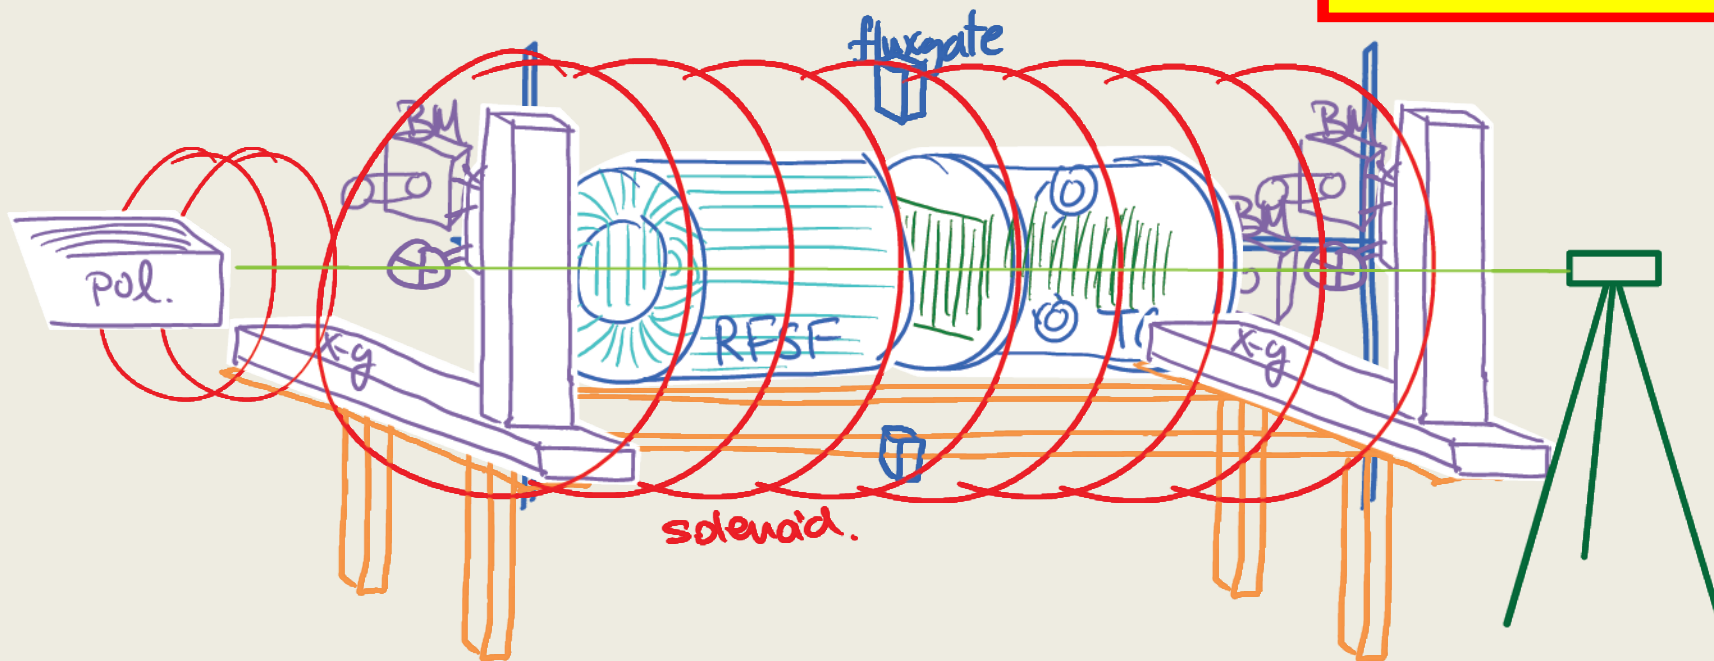 fluxgate
BM
BM
BM
pol.
RFSF
x-g
x-g
solenoid.